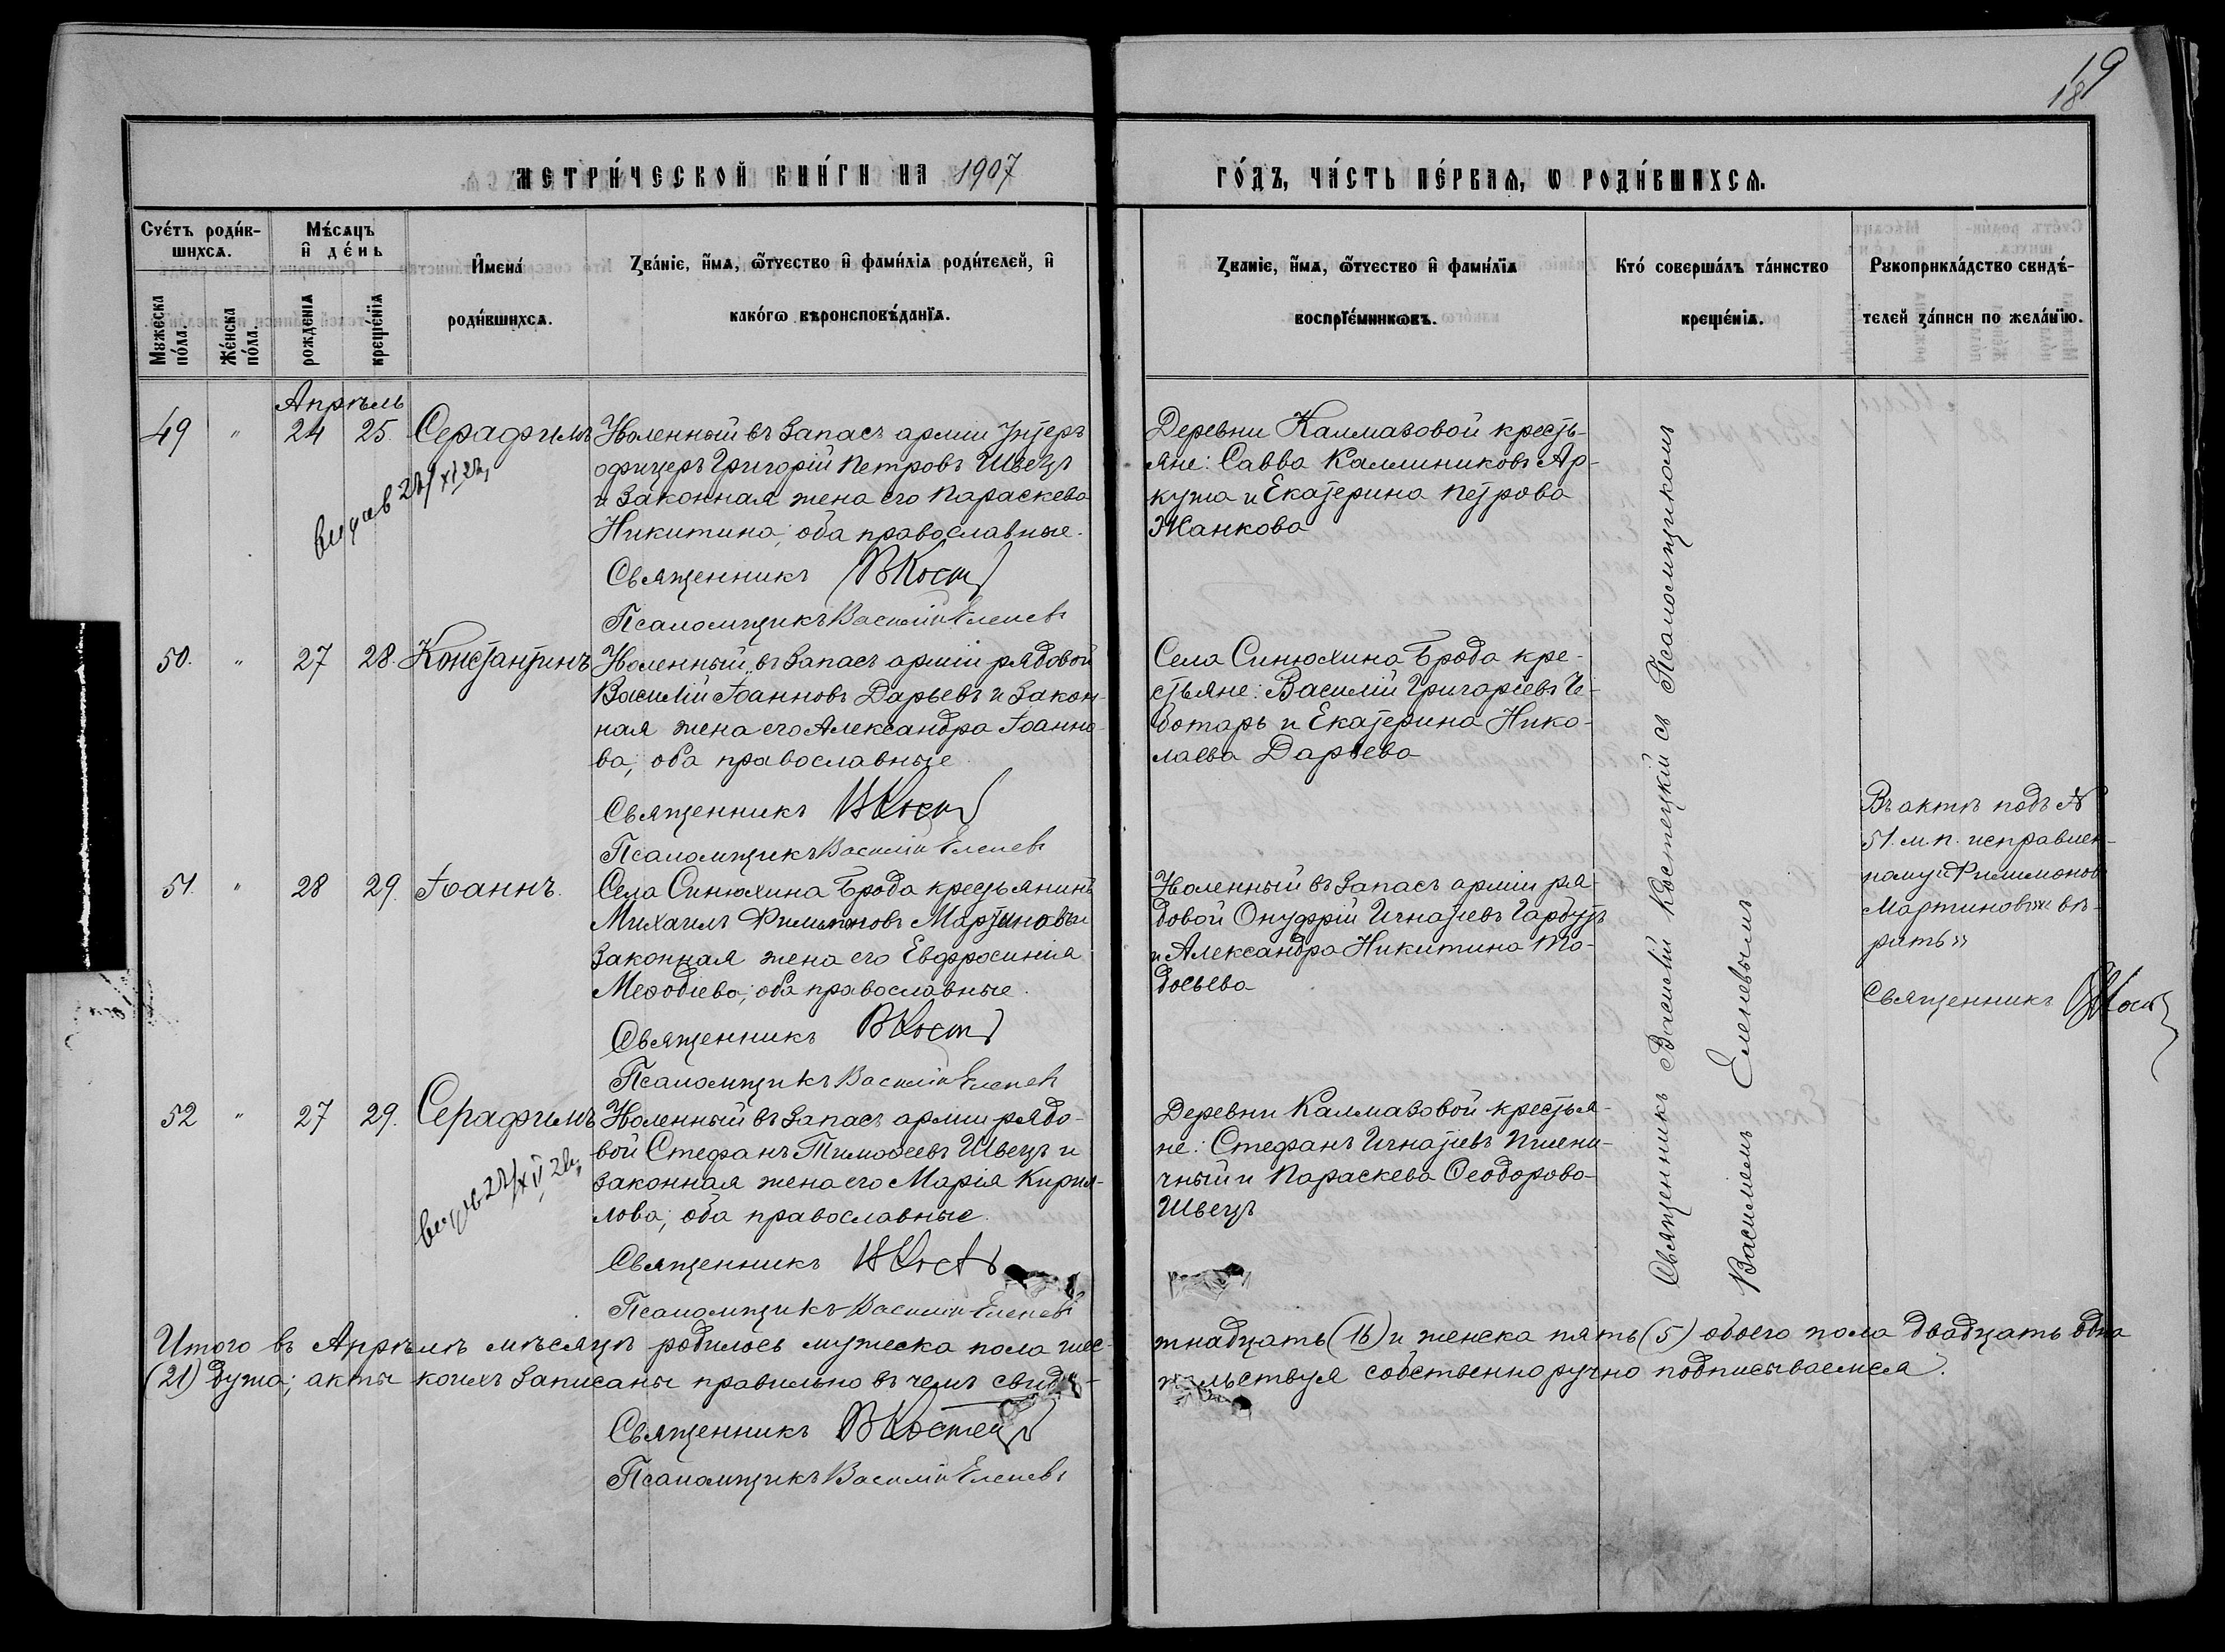 19
18
МЕТРИ́ЧЕСКОЙ КНИ́ГИ НА 1907
ГО́ДЪ, ЧА́СТЬ ПЕ́РВАѦ, Ѡ РОДИ́ВШИХСѦ.
Сче́тъ роди́в-
шихсѧ.
Мꙋжеска по́ла.
Же́нска по́ла.
Мѣ́сѧцъ
и҆ де́нь
рожденїѧ
креще́нїѧ
И҆мена́
роди́вшихсѧ.
Ꙁва́нїе, и҆́мѧ, ѻ҆́тчество и҆ фами́лїѧ роди́телей, и҆
како́гѡ вѣроисповѣ́данїѧ.
Ꙁванїе, и҆́мѧ, ѻ҆́тчество и҆ фами́лїѧ
воспрїе́мникѡвъ.
Кто́ соверша́лъ та́инство
креще́нїѧ.
Рꙋкоприкла́дство свидѣ́-
телей ꙁа́писи по жела́нїю.
Апрѣль
49 " 24 25. Серафимъ
Уволенный въ запасъ армии Унтеръ
офицеръ Григорій Петровъ Швецъ
и законная жена его Параскева
Никитина; оба православные.
Священникъ ВКост
Псаломщикъ Василій Еленевъ
Деревни Калмазовой кресть-
яне: Савва Каллиниковъ Ар-
куша и Екатерина Петрова
Жанкова
50. " 27 28. Константинъ
Уволенный въ запасъ арміи рядовой
Василій Іоанновъ Дарьевъ и закон-
ная жена его Александра Іоанно-
ва, оба православные
Священникъ ВКост
Псаломщикъ Василій Еленевъ
Села Синюхина Брода кре-
стьяне: Василій Григоріевъ Че-
ботарь и Екатерина Нико-
лаева Дарьева
51. " 28 29. Іоаннъ.
Села Синюхина Брода крестьянинъ
Михаилъ Филимоновъ Мартиновъ и
законная жена его Евфросинія
Меѳодіева; оба православные.
Священникъ ВКост
Псаломщикъ Василій Еленевъ
Уволенный въ запасъ арміи ря-
довой Онуфрій Игнатіевъ Гарбузъ
и Александра Никитина То-
досьева
Въ актѣ подъ №
51. м. п. исправлен-
ному „Филимоновъ
Мартиновъ" вѣ-
рить"
Священникъ ВКост
52 " 27 29. Серафимъ
Уволенный въ запасъ армии рядо-
вой Стефанъ Тимоѳеевъ Швецъ и
законная жена его Марія Кирил-
лова; оба православные.
Священникъ ВКост
Псаломщикъ Василій Еленевъ
Деревни Калмазовой крестья-
не: Стефанъ Игнатіевъ Пшени-
чный и Параскева Ѳеодорова
Швецъ
Священникъ Василій Костецкій съ Псаломщикомъ
Василіемъ Еленевымъ
Итого въ Апрѣлѣ мѣсяцѣ родилось мужеска пола шес-
тнадцать (16) и женска пять (5) обоего пола двадцать одна
(21) душа; акты коихъ записаны правильно въ чемъ свидѣ-
тельствуя собственноручно подписываемся.
Священникъ ВКостец
Псаломщикъ Василій Еленевъ